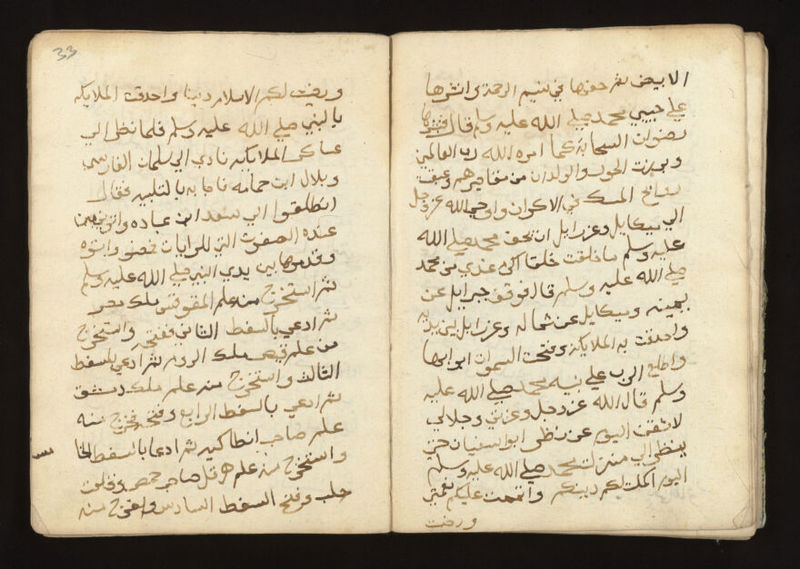 الابيض ثم حفوها في نسيم الرحمة وانثرها
علي حبيبي محمد صلي الله عليه وسلم قال فنثرتها
رضوان السحابة كما امره الله رب العالمين
وبرزت الحور والولدان من مقاصرهم وعبقت
المسك في الاكوان واوحي الله عز وجل
الي ميكايل وعزرايل ان بحق محمد صلي الله
عليه وسلم ما خلقت خلقا اكرم عندي من محمد
صلي الله عليه وسلم قال فوقف جبرايل عن
يمينه وميكايل عن شماله وعزرايل بين يديه
واحدقت به الملايكة وفتحت السموات ابوابها
واطلع الرب علي نبيه محمد صلي الله عليه
وسلم قال الله عز وجل وعزتي وجلالي
لاشفت اليوم عن نظر ابو سفيان حتي
ينظر الي منزلت محمد صلي الله عليه وسلم
اليوم اكملت لكم دينكم واتممت عليكم نعمتي
ورضت
33
ورضيت لكم الاسلام دينا واحدقت الملايكة
بالنبي صلي الله عليه وسلم فلما نظر الي
عساكر الملايكة نادي الي سلمان الفارسي
وبلال ابن حمامه فاجابه بالتلبيه فقال
انطلقوا الي سعد ابن عباده واتوني من
عنده الصفوت التي للرايات فمضو واتوه
وقدموها بين يدي النبي صلي الله عليه وسلم
ثم استخرج منه علم المقوقس ملك مصر
ثم ادعي بالسفط الثاني ففتحه واستخرج
من علم قيصر ملك الروم ثم ادعي بالسفط
الثالث واستخرج منه علم ملك دمشق
ثم ادعي بالسفط الرابع وفتحه فخرج منه
علم صاحب انطاكيه ثم ادعا بالسفط الخا
مس
واستخرج منه علم هرقل صاحب حمص وقلعت
حلب وفتح السفط السادس واخرج منه